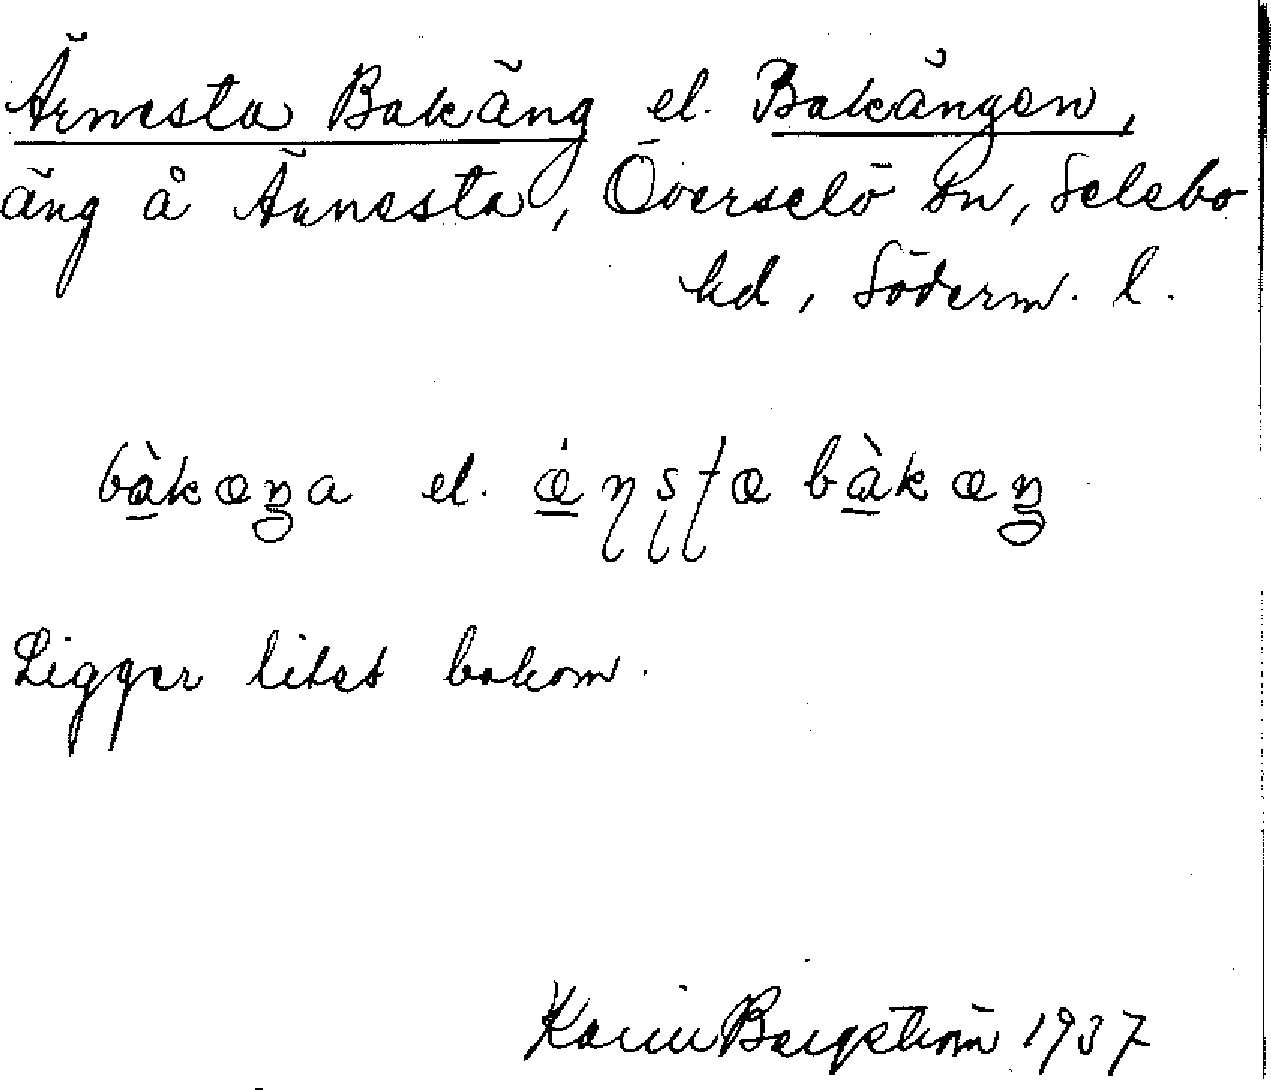 Ärnesta Bakäng el. Bakängen,
äng å Ärnesta, Överselö sn, Selebo
hd, Söderm. l.
bàkæŋa el. ǽɳʂʈæ bàkæŋ
Ligger litet bakom.
Karin Bergström 1937